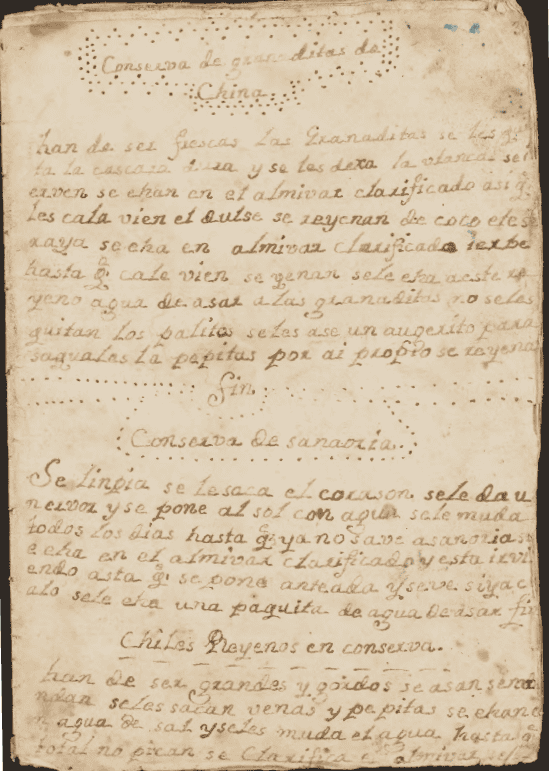 Conserva de granaditas de
China
han de ser frescas las Granaditas se les
ta la cascara dura y se les dexa la vlanca se
erven se echan en el almivar clarificado asi q.
les cala vien el dulse se reyenan de coco ele se
raya se echa en almivar clarificado ierbe
hasta q. cale vien se yenan sele echa aeste re
yeno agua de asar a las granaditas no seles
quitan los palitos seles ase un augerito para
saquales la pepitas por ai propio se reyena
Fin
Conserva de sanaoria
Se linpia se lesaca el corason sele da u
nervor y se pone al sol con agua sele muda
todos los dias hasta q. ya no save asanoria se
e cha en el almivar clarificado y esta irvi
endo asta q. se pone anteada y seve si ya c
alo sele eha una paquita de agua de asar fin
Chiles Reyenos en conserva.
han de ser grandes y gordos se asan
seles sacan venas y pepitas se echan e
n agua de sal y seles muda el agua hasta q.
total no pican se Clarifica almivar